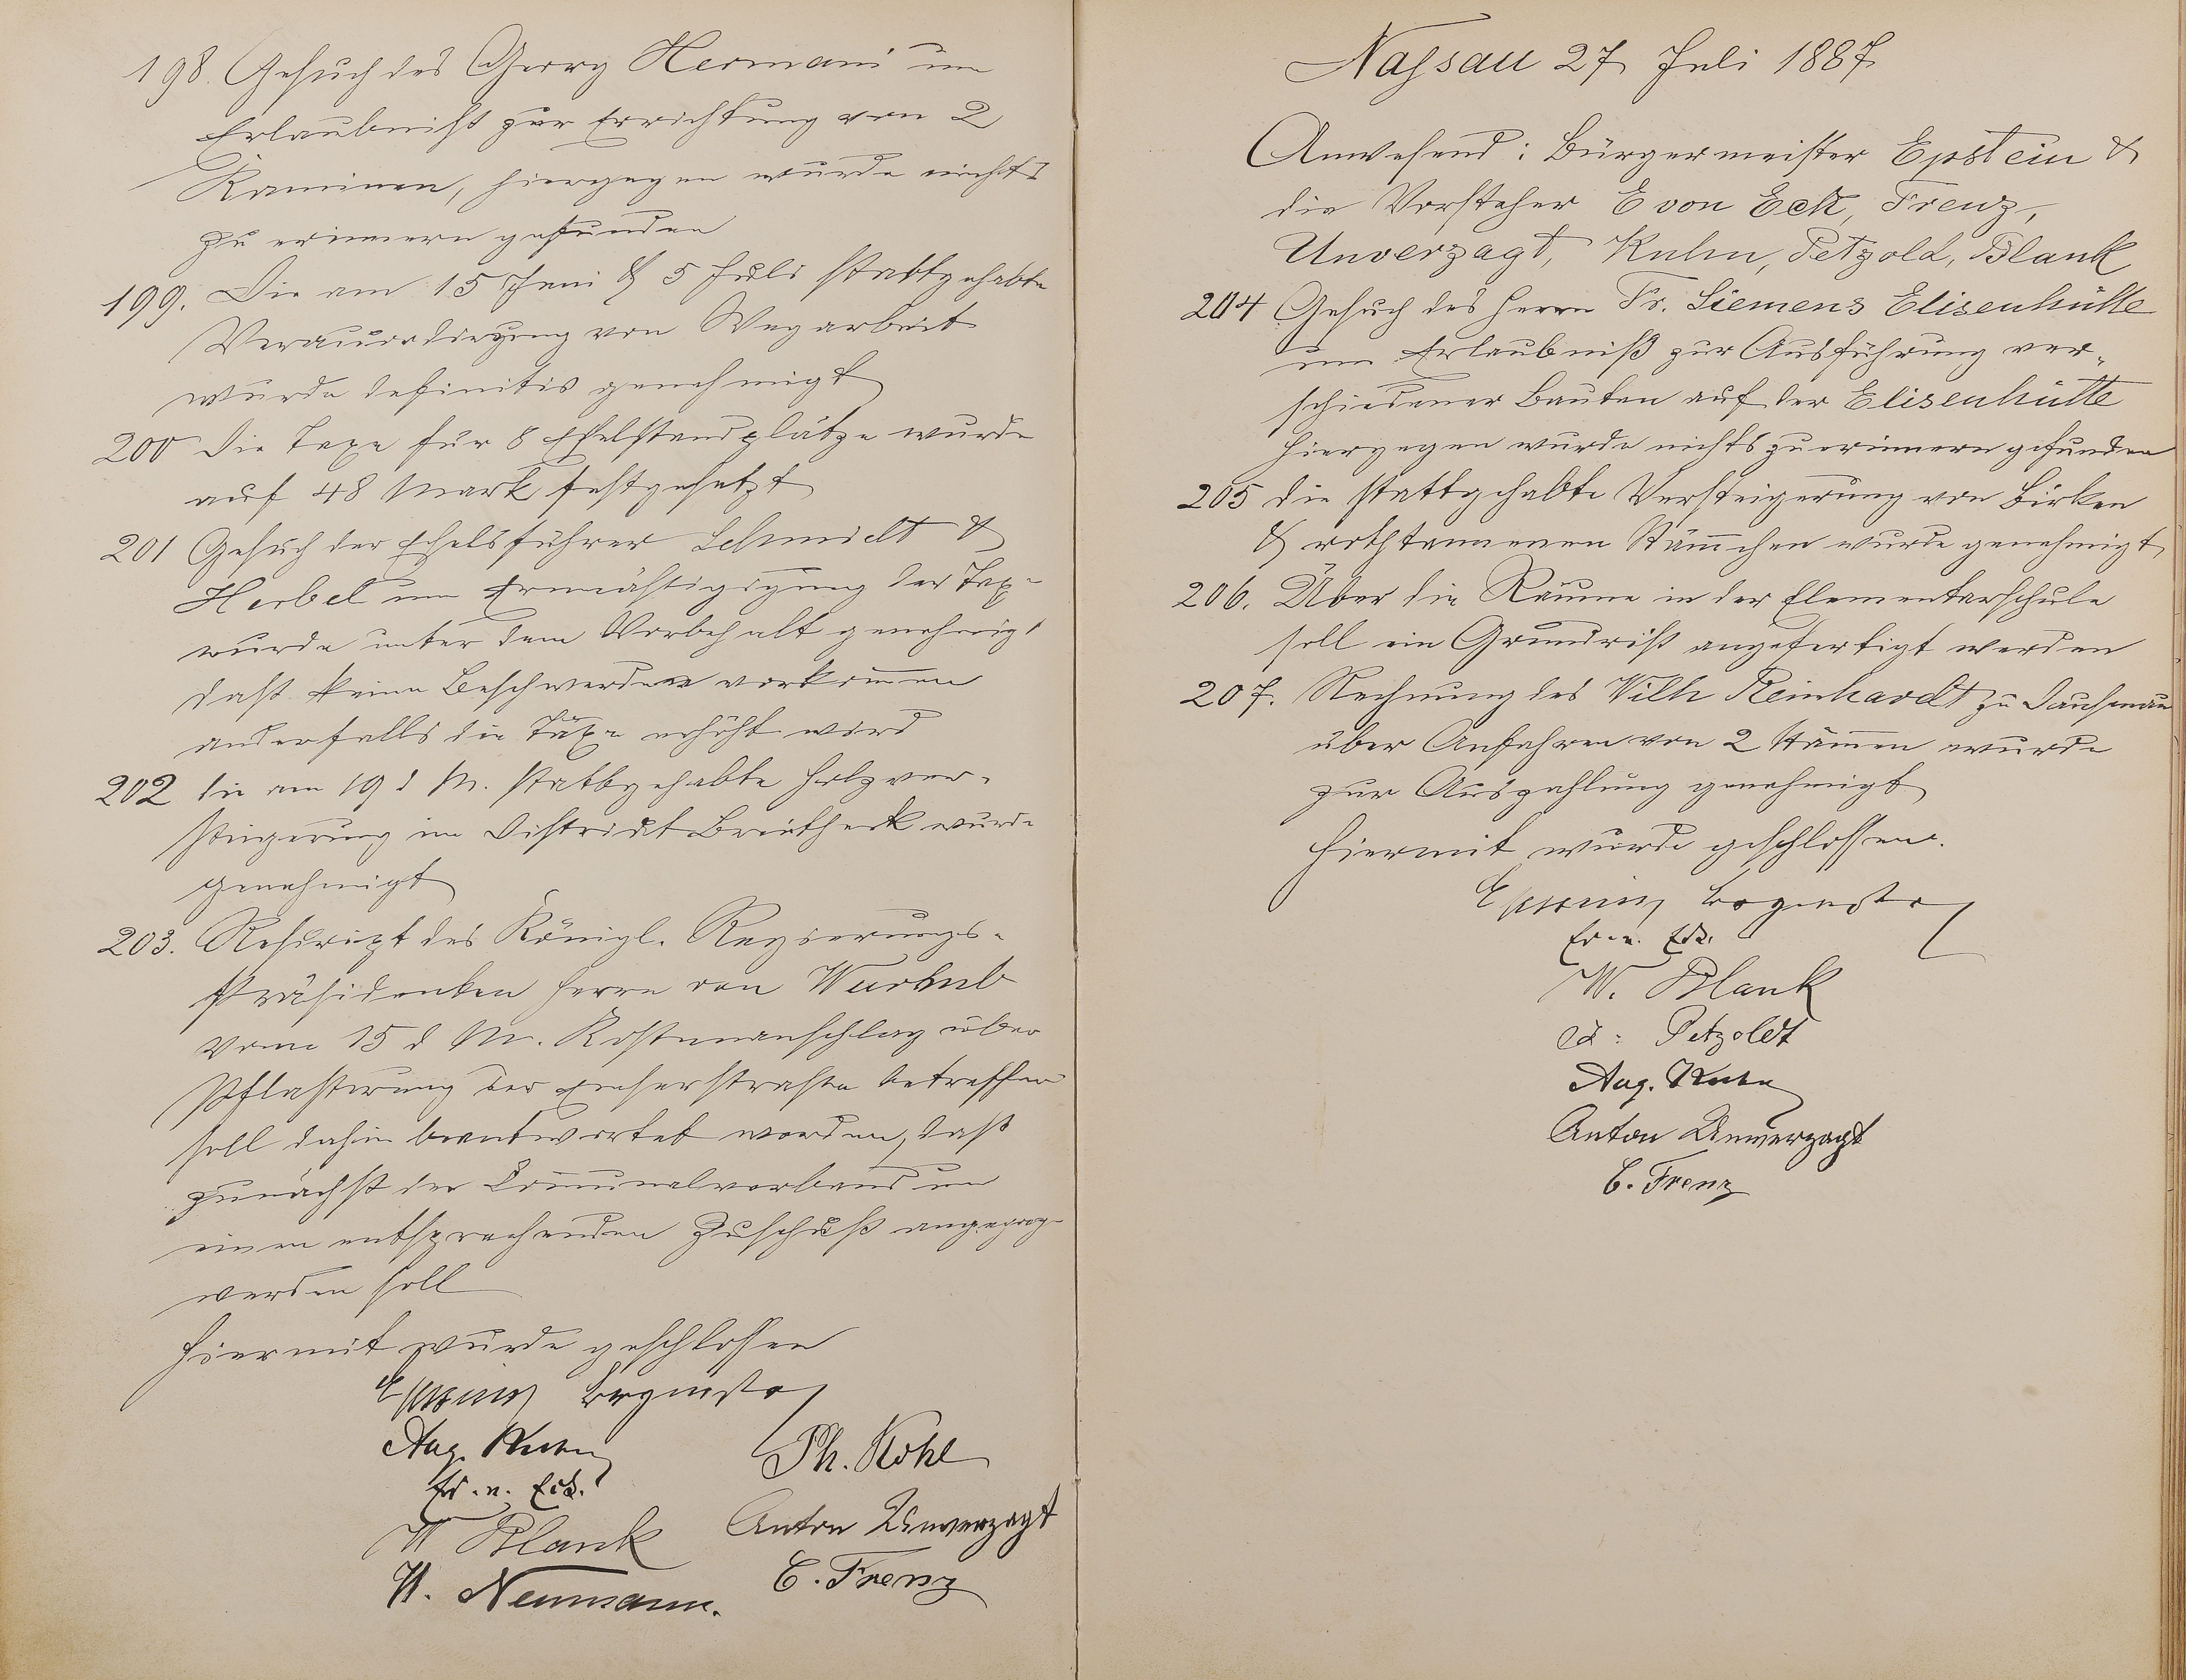 198. Gesuch des Georg Hermani um
Erlaubnist zur Errichtung von 2
Kaminen, hiergegen wurde nichts
zu erinnern gefunden
199. Die am 15 Juni & 5 Juli stattgehabte
von Wegarbeit
wurde definitiv genehmigt
200 Die Taxe für 8 Eselstandplätze wurde
auf 48 Mark festgesetzt
201 Gesuch der Eselsführer Schmidt &
Herbel um der Tax-
wurde unter dem Vorbehalt genehmigt
dast keine Beschwerden vorkom̅en
anderfalls die Taxe erhöht wird
202 die am 19 d M. stattgehabte Holzver-
steigerung im Districkt wurde
genehmigt
203. Rescript des Königl. Regierungs-
Präsidenten Herrn von Wurmb
vom 15 d M. Kostenanschlag über
Pflasterung der Emserstraste betreffen
soll dahin beantwortet werden, dast
zunächst der Com̅unalverband um
einen entsprechenden Zuschuß
werden soll
Hiermit wurde geschlossen
Epstein Brgmstr
Aug. Kuhn
Ph. Kohl
Ed. v. Eck.
W Blank
Anton Unverzagt
W. Neumann.
C. Frenz
Nassau 27 Juli 1887
Anwesend: Bürgermeister Epstein &
die Vorsteher E von Eck, Frenz,
Unverzagt, Kuhn, Petzold, Blank
204 Gesuch des Herrn Fr. Siemens Elisenhütte
um Erlaubniß zur Ausführung ver-
schiedener Bauten auf der Elisenhütte
hiergegen wurde nichts zu erinnern gefunden
205 die stattgehabte Versteigerung von Birken
& rothtannenen Stäm̅chen wurde genehmigt
206. Über die Räume in der Elementarschule
soll ein Grundrist angefertigt werden
207. Rechnung des Wilh Reinhardt zu Dausenau
über Anfahren von 2 Stäm̅en wurde
zur Auszahlung genehmigt
Hiermit wurde geschlossen.
Epstein Brgmstr
Ed. v. Eck.
W. Blank
Ed: Petzoldt
Aug. Kuhn
Anton Unverzagt
C. Frenz